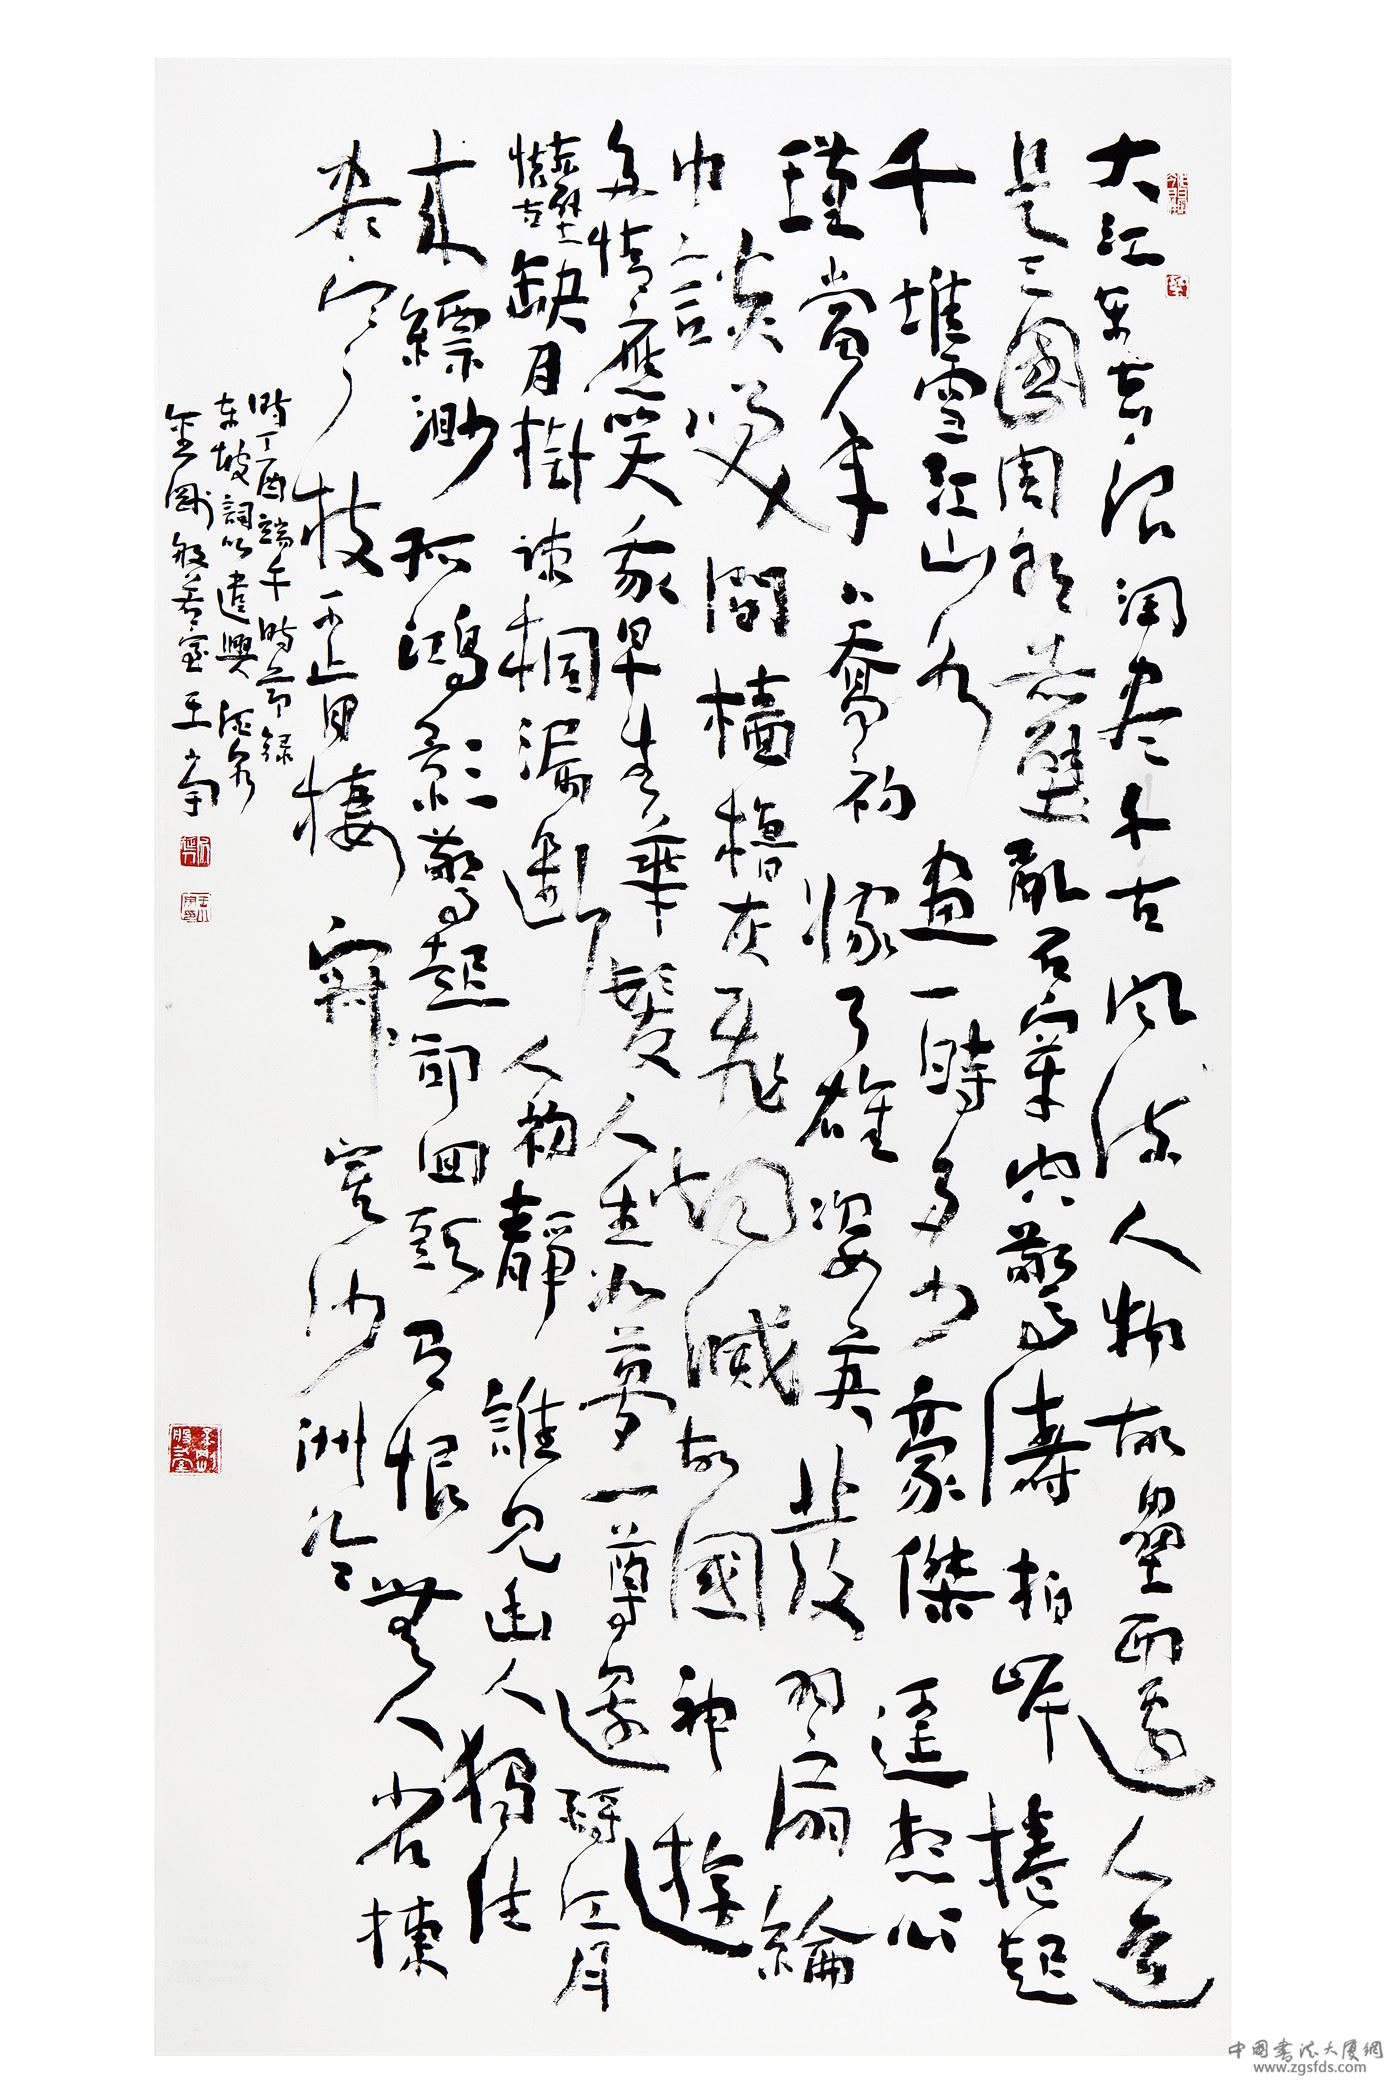 大江東去浪淘盡千古風流人物故壘西邊人道
是三國周郎赤壁亂石穿空驚濤拍岸捲起
千堆雪江山如畫一時多少豪傑遥想公
瑾當年小喬初嫁了雄姿英發羽扇綸
巾談笑間檣櫓灰飛烟滅故國神遊
多情應笑我早生華髮人生如夢一尊還酹江月
赤壁
懷古
缺月掛疎桐漏斷人初靜誰見幽人獨往
來縹渺孤鴻影驚起卻回頭有恨無人省揀
盡寒枝不肯棲寂寞沙洲冷
時丁酉端午時節録
東坡詞以遣興酒泉
金剛般若室王南
中国书法大厦網
www.zgsfds.com